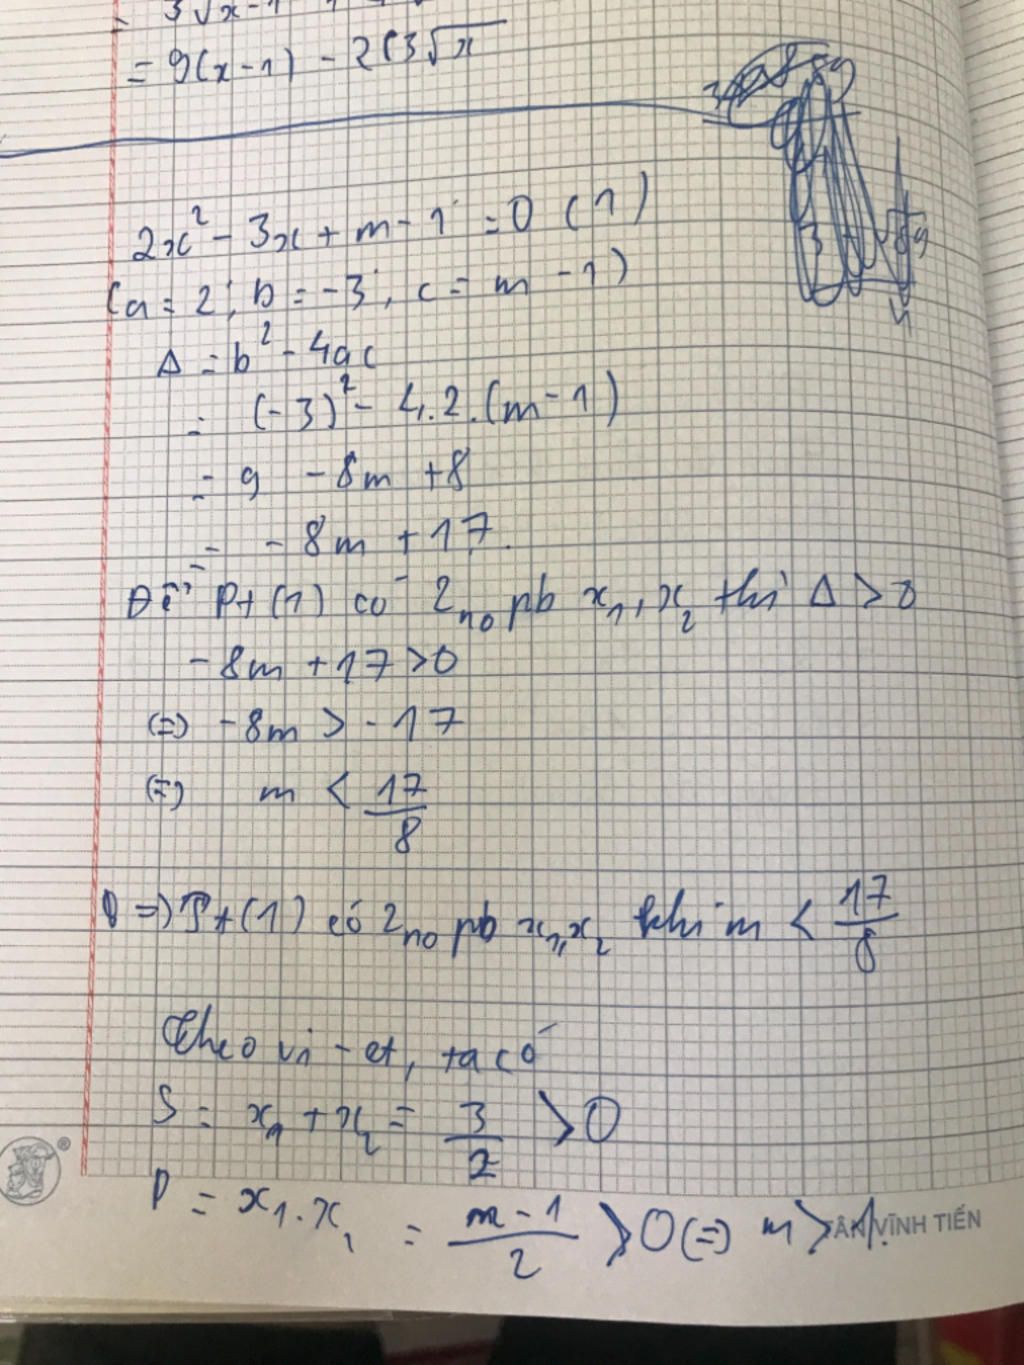 = 3√x-1
= 9(x-1) - 2(3√x
2x² - 3x + m - 1 = 0 (1)
(a = 2; b = -3; c = m - 1)
Δ = b² - 4ac
= (-3)² - 4.2.(m-1)
= 9 - 8m + 8
= - 8m + 17.
Để Pt (1) có 2 no pb x₁, x₂ thì Δ > 0
- 8m + 17 > 0
(=) - 8m > - 17
(=) m < 17/8
=) Pt (1) có 2 no pb x₁, x₂ khi m < 17/8
Theo vi-et, ta có
S = x₁ + x₂ = 3/2 > 0
®
P = x₁.x₁ = m-1/2 > 0 (=) m > 1.
VĨNH TIẾN